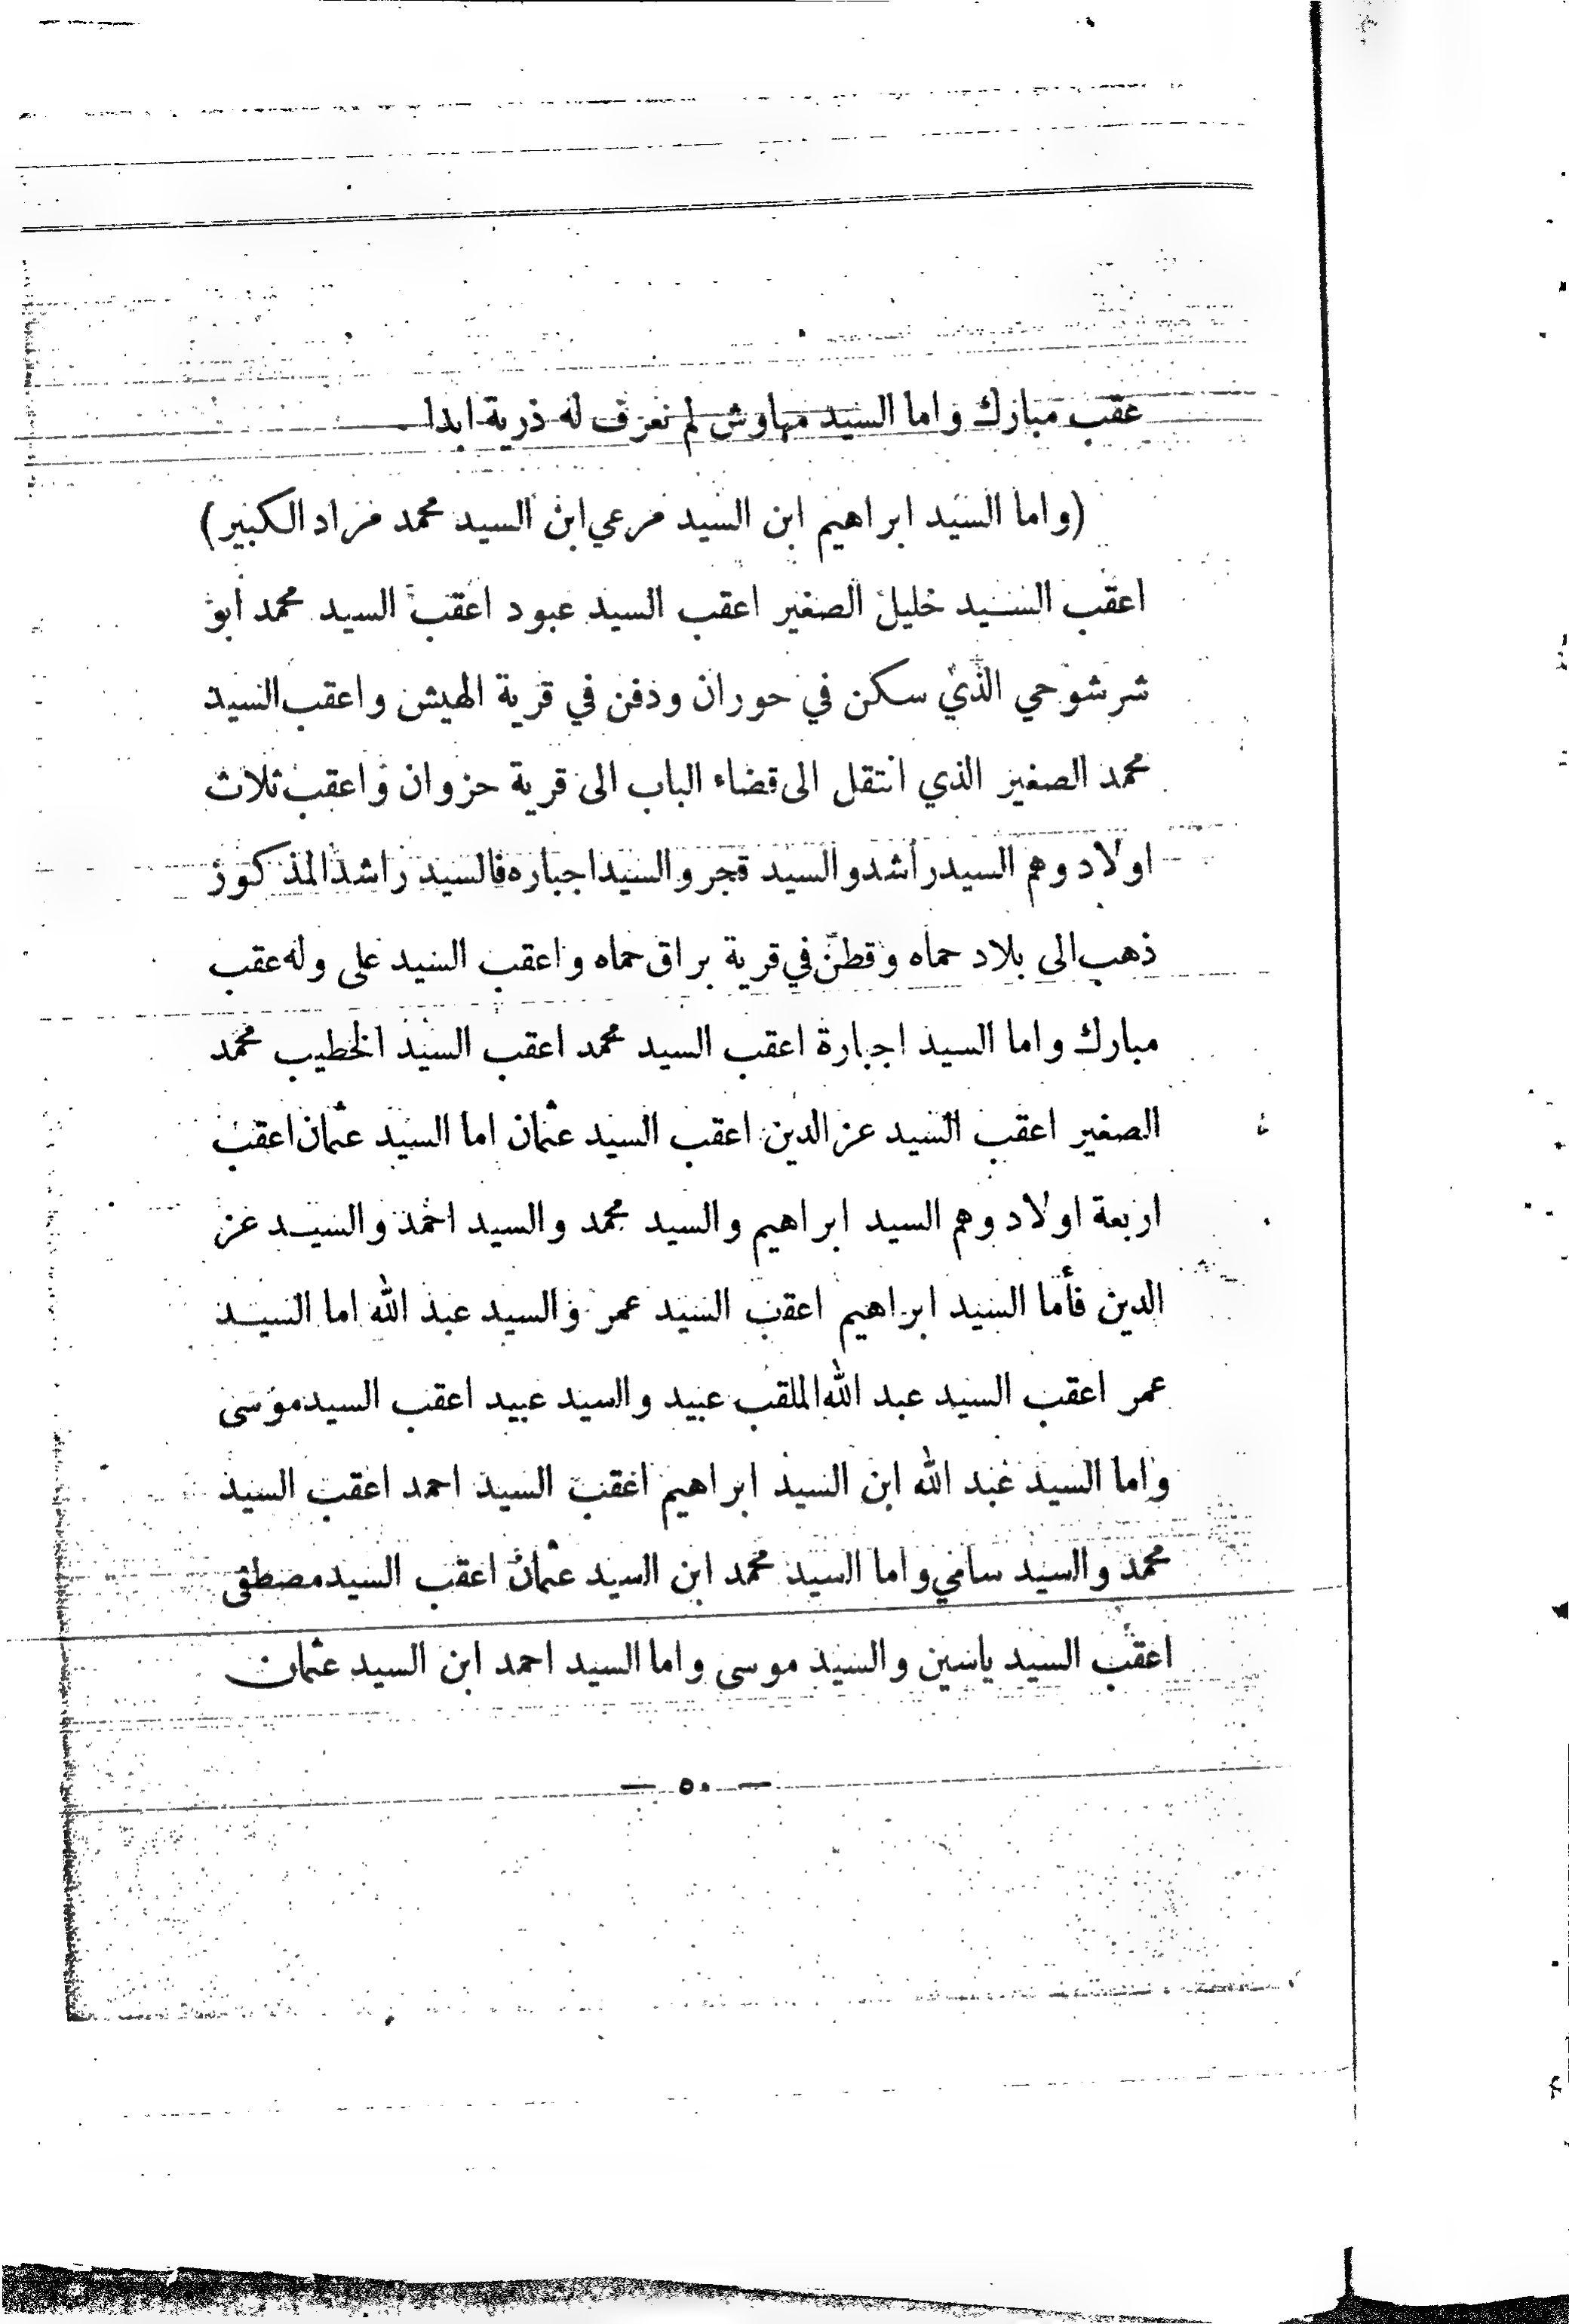 عقب مبارك واما السيد مهاوش لم نعرف له ذرية ابدا .
(واما السيد ابراهيم ابن السيد مرعي ابن السيد محمد مراد الكبير)
اعقب السيد خليل الصغير اعقب السيد عبود اعقب السيد محمد ابو
شرشوحي الذي سكن في حوران ودفن في قرية الهيش واعقب السيد
محمد الصغير الذي انتقل الى قضاء الباب الى قرية حزوان واعقب ثلاث
اولاد وهم السيد راشد والسيد قجر والسيد اجباره فالسيد راشد المذكور
ذهب الى بلاد حماه وقطن في قرية براق حماه واعقب السيد على وله عقب
مبارك واما السيد اجبارة اعقب السيد محمد اعقب السيد الخطيب محمد
الصغير اعقب السيد عز الدين اعقب السيد عثمان اما السيد عثمان اعقب
اربعة اولاد وهم السيد ابراهيم والسيد محمد والسيد احمد والسيد عز
الدين فأما السيد ابراهيم اعقب السيد عمر والسيد عبد الله اما السيد
عمر اعقب السيد عبد الله الملقب عبيد والسيد عبيد اعقب السيد موسى
واما السيد عبد الله ابن السيد ابراهيم اعقب السيد احمد اعقب السيد
محمد والسيد سامي واما السيد محمد ابن السيد عثمان اعقب السيد مصطفى
اعقب السيد ياسين والسيد موسى واما السيد احمد ابن السيد عثمان
— ٥٠ —